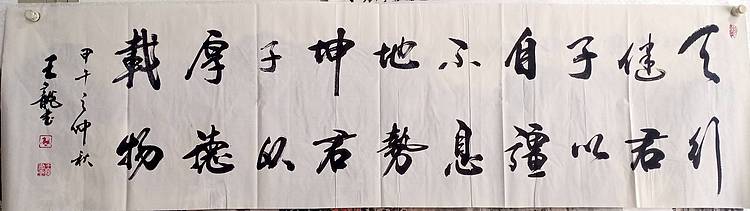 天行
健君
子以
自疆
不息
地勢
坤君
子以
厚德
載物
甲午之仲秋
王龍書